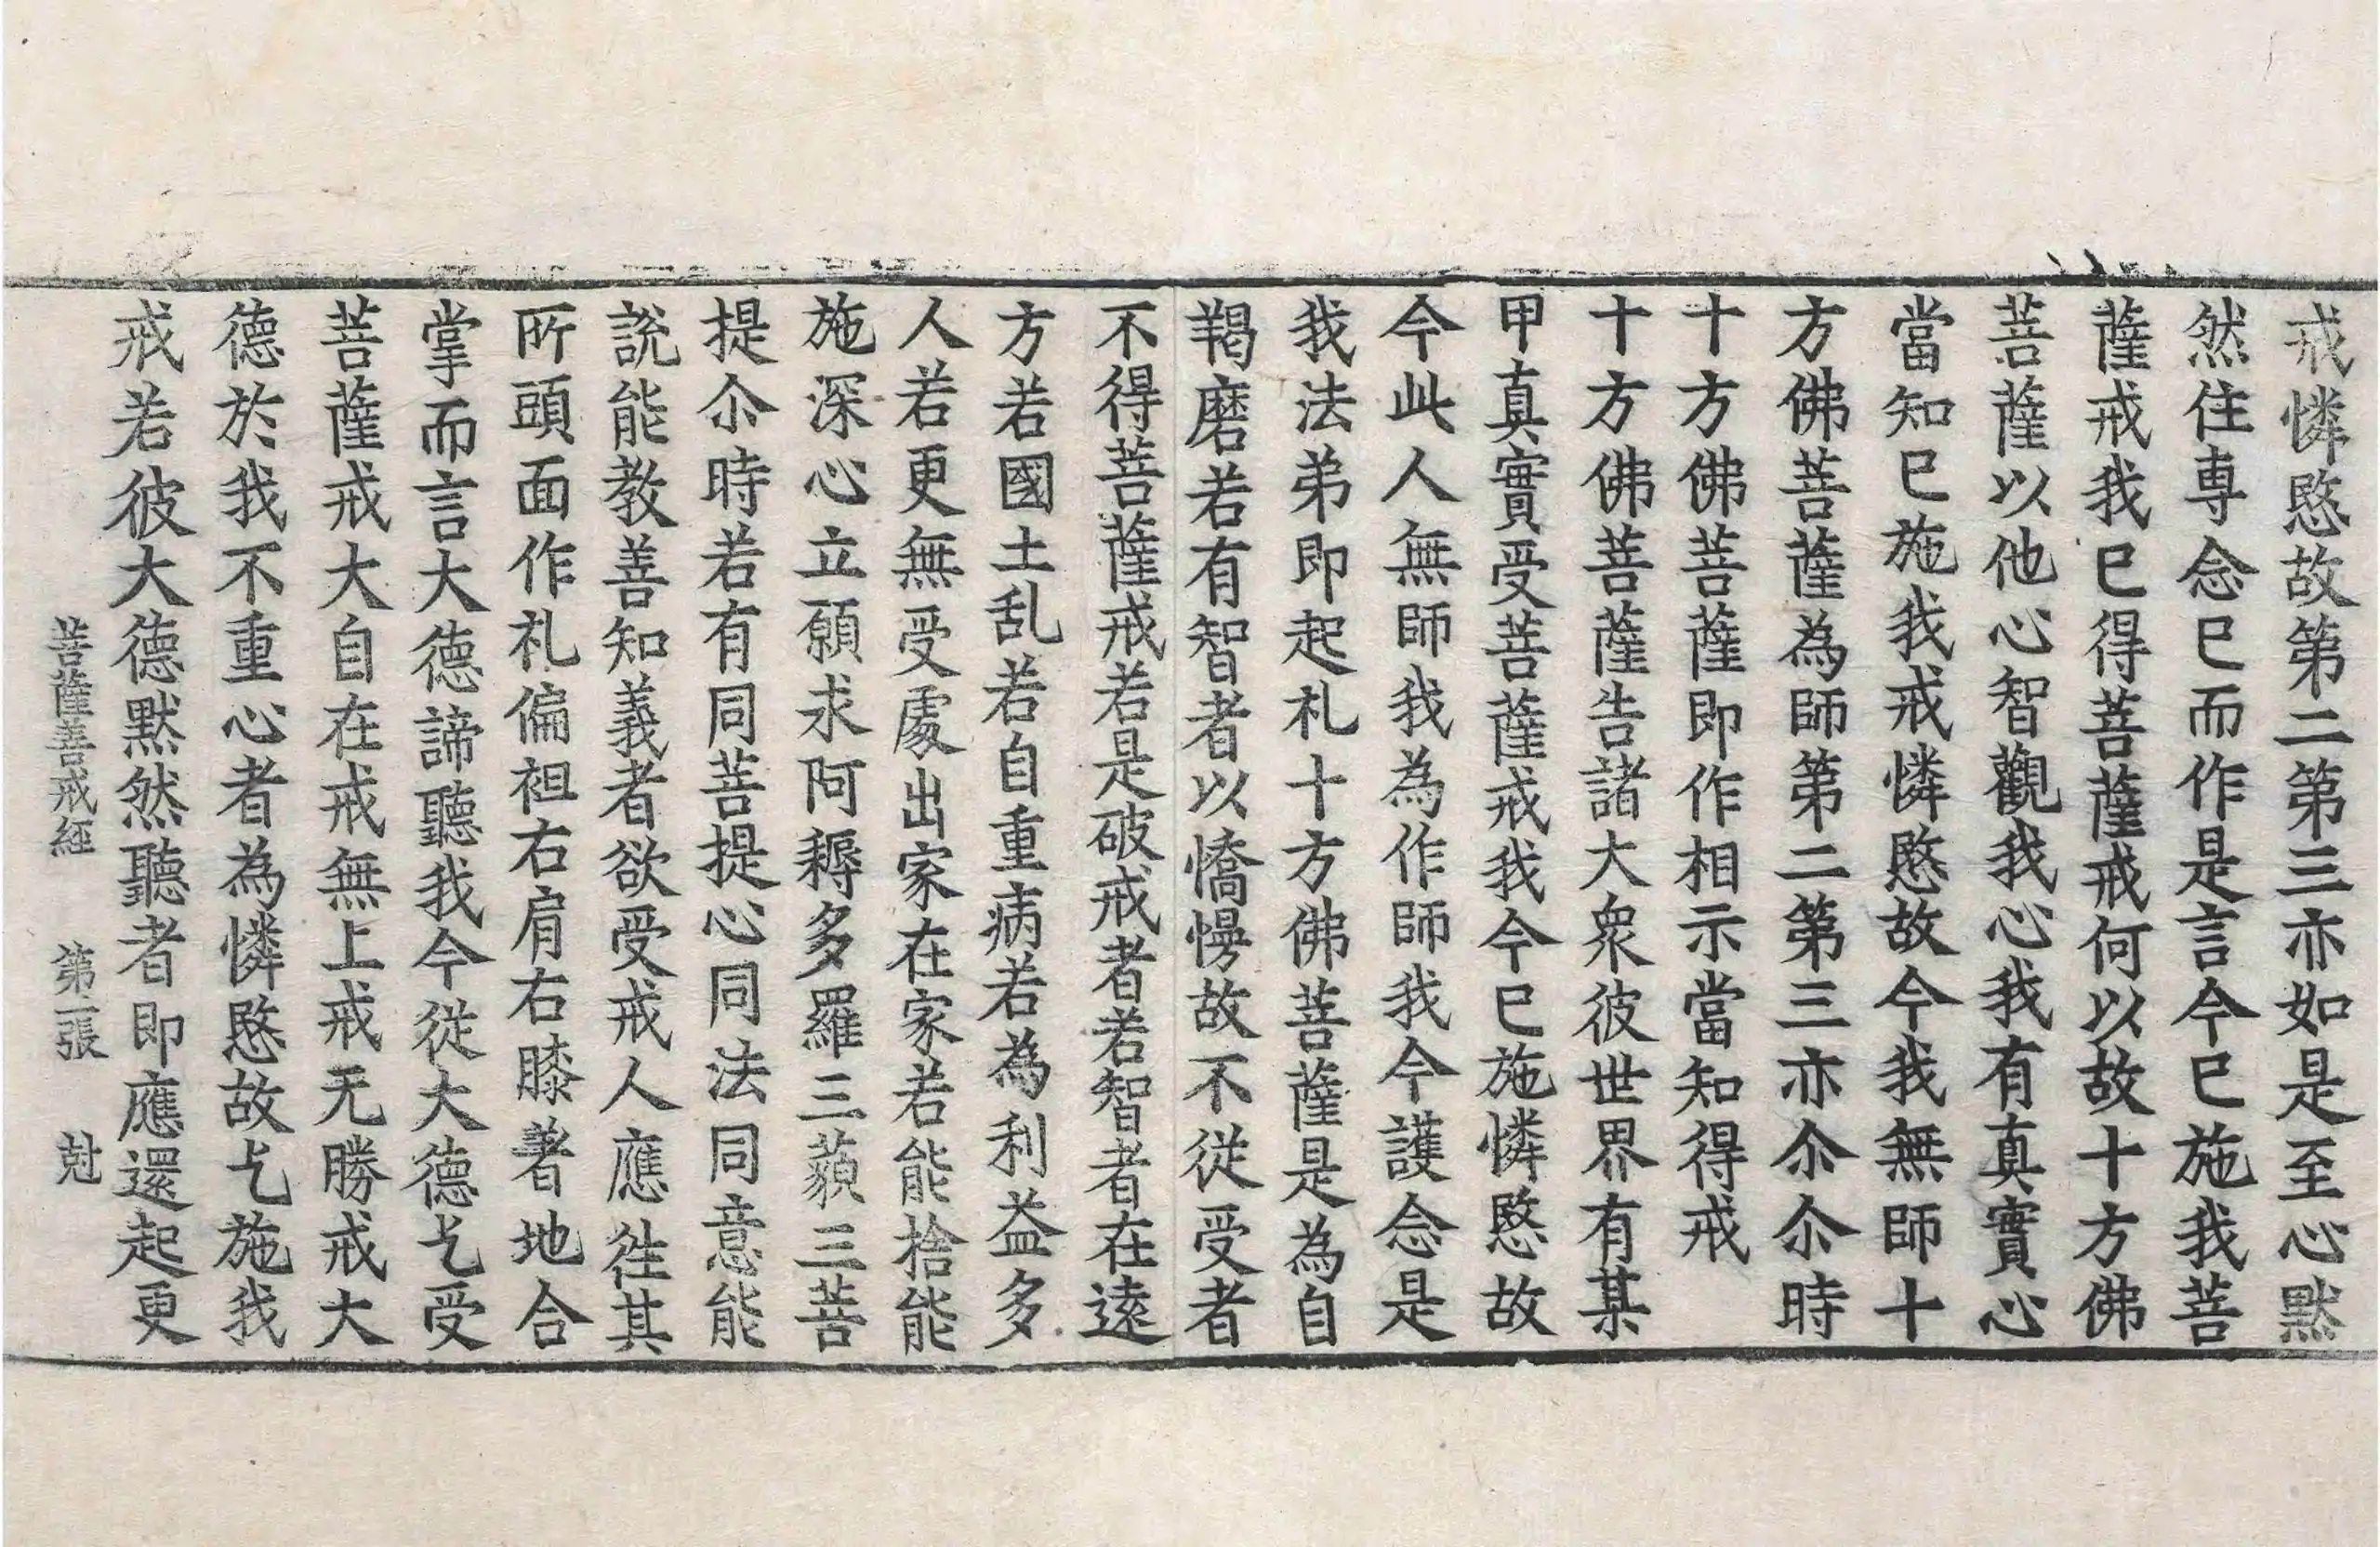 戒憐愍故第二第三亦如是至心黙
然住専念已而作是言今已施我菩
薩戒我已得菩薩戒何以故十方佛
菩薩以他心智觀我心我有真實心
當知已施我戒憐愍故今我無師十
方佛菩薩為師第二第三亦尒尒時
十方佛菩薩即作相示當知得戒
十方佛菩薩告諸大衆彼世界有某
甲真實受菩薩戒我今已施憐愍故
今此人無師我為作師我今護念是
我法弟即起礼十方佛菩薩是為自
羯磨若有智者以憍慢故不從受者
不得菩薩戒若是破戒者若智者在遠
方若國土乱若自重病若為利益多
人若更無受處出家在家若能捨能
施深心立願求阿耨多羅三藐三菩
提尒時若有同菩提心同法同意能
說能教善知義者欲受戒人應往其
所頭面作礼偏袒右肩右膝著地合
掌而言大德諦聽我今從大德乞受
菩薩戒大自在戒無上戒无勝戒大
德於我不重心者為憐愍故乞施我
戒若彼大德黙然聽者即應還起更
菩薩善戒經 第二張 尅